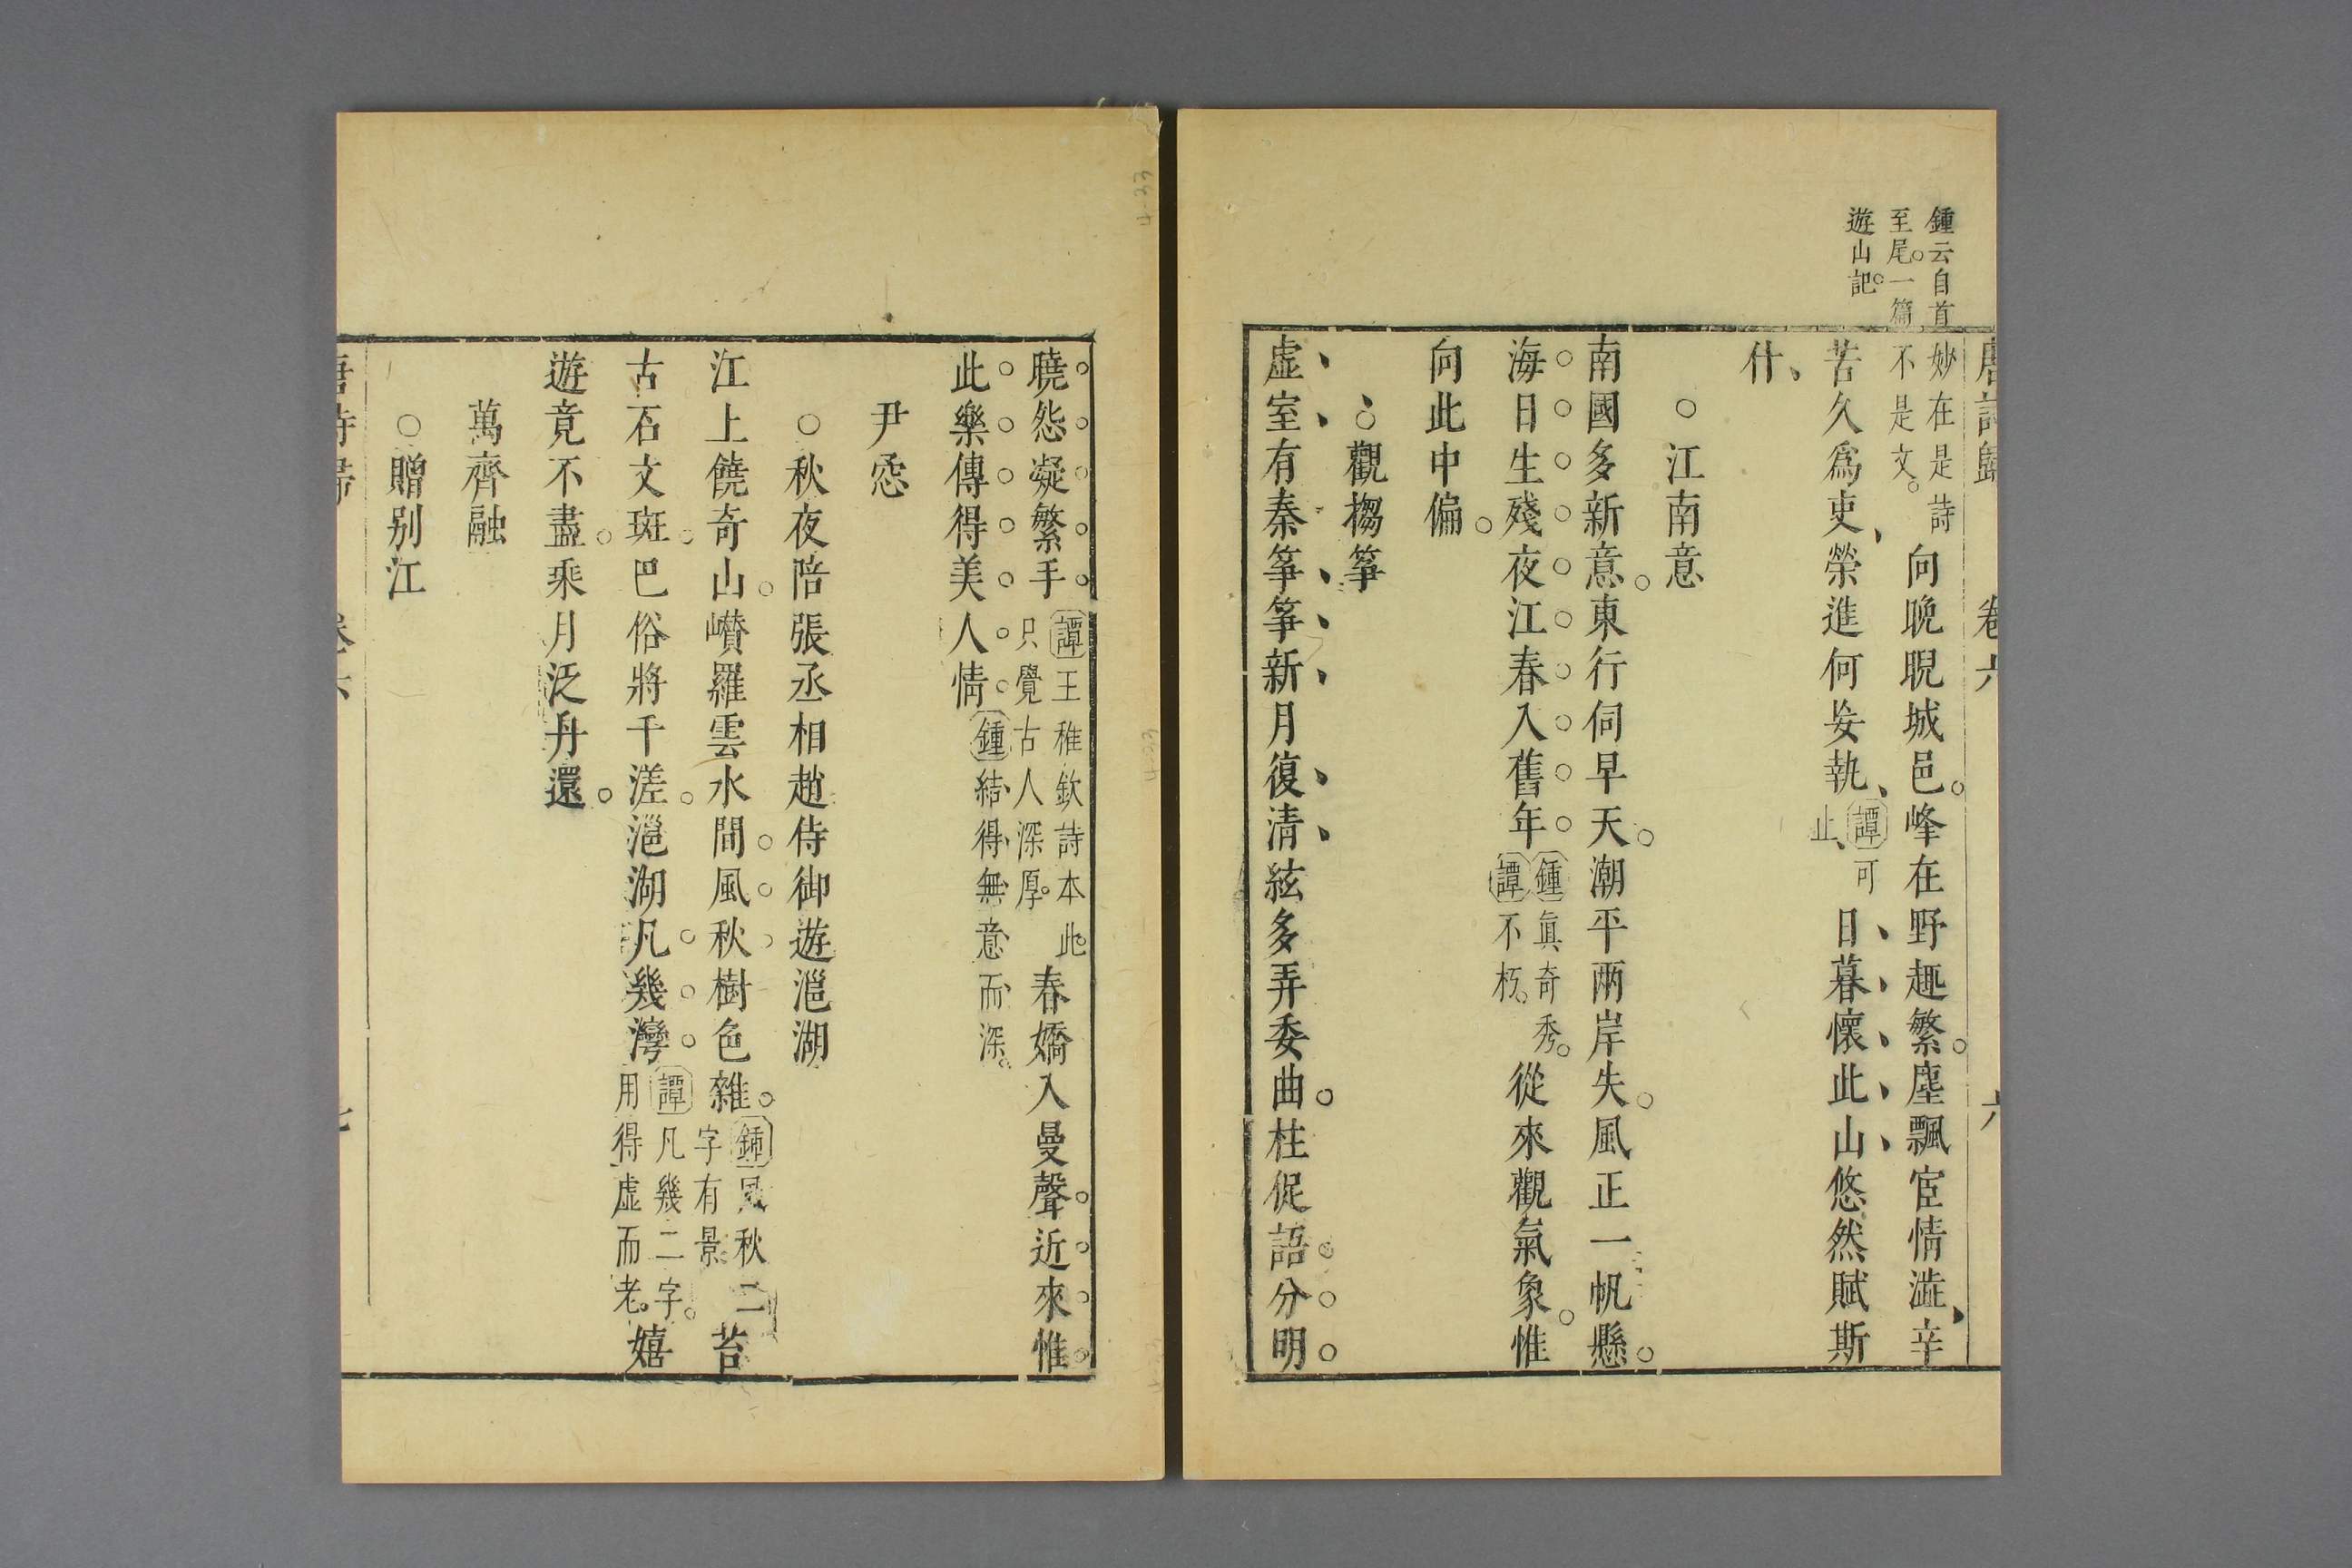 鍾云自首
至尾一篇
遊山記
唐詩歸 卷六 六
妙在是詩
不是文 向晚睨城邑峰在野趣繁塵飄宦情澁辛
苦久爲吏榮進何妄執 譚可止 日暮懷此山悠然賦斯
什
○江南意
南國多新意東行伺早天潮平兩岸失風正一帆懸
海日生殘夜江春入舊年 鍾眞奇秀 譚不朽 從來觀氣象惟
向此中偏
○觀搊筝
虛室有秦筝筝新月復清絃多弄委曲柱促語分明
曉怨凝繁手 譚王稚欽詩本此只覺古人深厚 春嬌入曼聲近來惟
此樂傳得美人情 鍾結得無意而深
尹㤝
○秋夜陪張丞相趙侍御遊灉湖
江上饒奇山巑羅雲水間風秋樹色雜 鍾風秋二字有景 苔
古石文斑巴俗將千溠灉湖凡幾灣 譚凡幾二字用得虛而老 嬉
遊竟不盡乘月泛舟還
萬齊融
○贈别江
唐詩歸 卷六 七